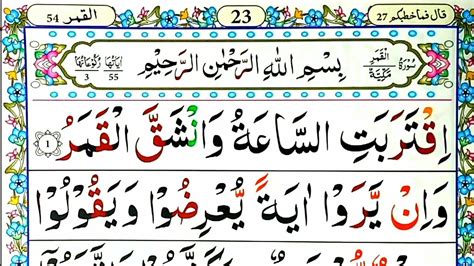 قال فماخطبكم 27
23
القمر 54
سُورَةُ الْقَمَرِ مَكِّيَّةٌ
بِسْمِ اللّٰهِ الرَّحْمٰنِ الرَّحِيْمِ
اٰيَاتُهَا 55
رُكُوْعَاتُهَا 3
اِقْتَرَبَتِ السَّاعَةُ وَانْشَقَّ الْقَمَرُ 1
وَاِنْ يَّرَوْا اٰيَةً يُّعْرِضُوْا وَيَقُوْلُوْا